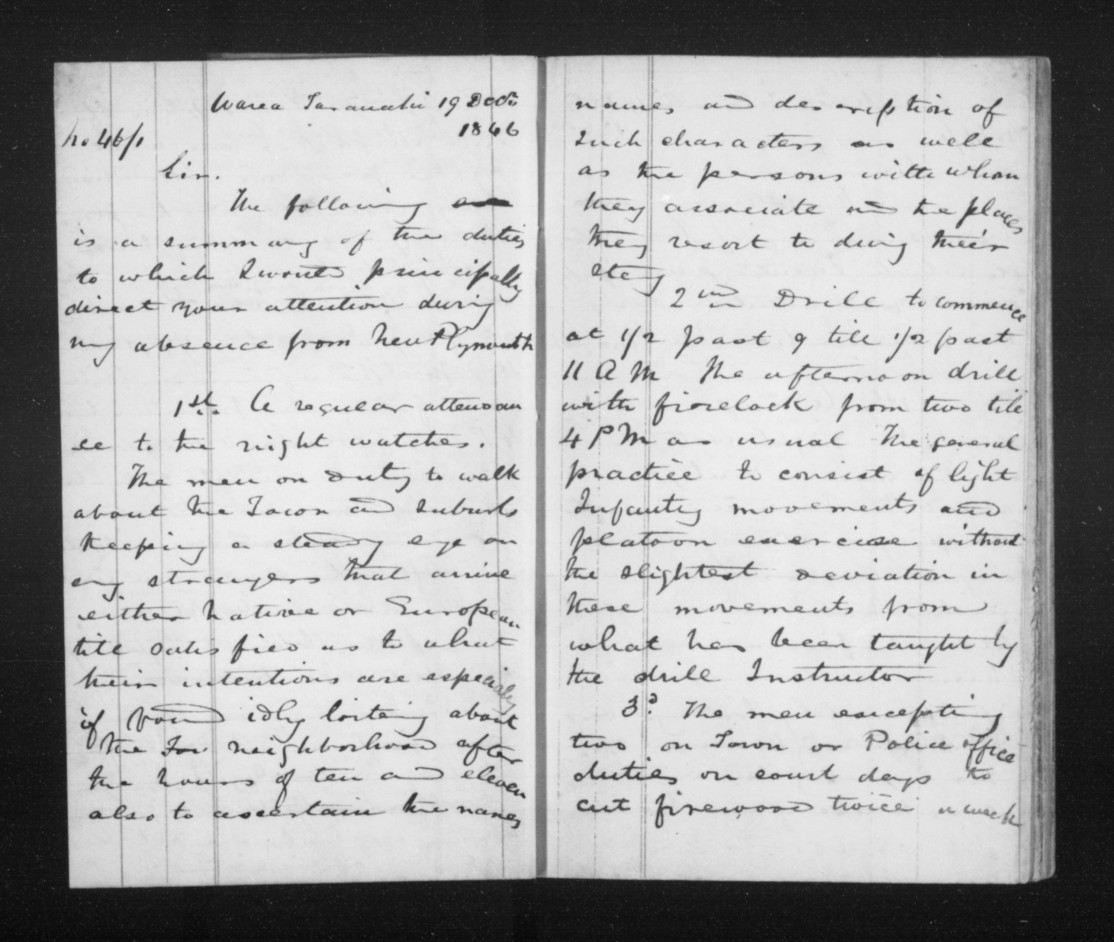 Warea Taranaki 19 Decr.
1846
No 46/1
Sir.
The following
is a summary of the duties
to which I would principally
direct your attention during
my absence from New Plymouth
1st. A regular attendan
ce to the night watches.
The men on duty to walk
about the Town and suburbs
keeping a steady eye on
any strangers that arrive
either native or European
till satisfied as to what
their intentions are especially
if found idly loitering about
the Tow neighborhood after
the hours of ten and eleven
also to ascertain the names
names and description of
such characters as well
as the persons with whom
they associate and the places
they resort to during their
stay
2nd Drill to commence
at 1/2 past 9 till 1/2 past
11 A M The afternoon drill
with firelock from two till
4 P M as usual The general
practice to consist of light
Infantry movements and
platoon exercise without
the slightest deviation in
these movements from
what has been taught by
the drill Instructor
3d The men excepting
two on Town or Police office
duties on court days to
cut firewood twice a week